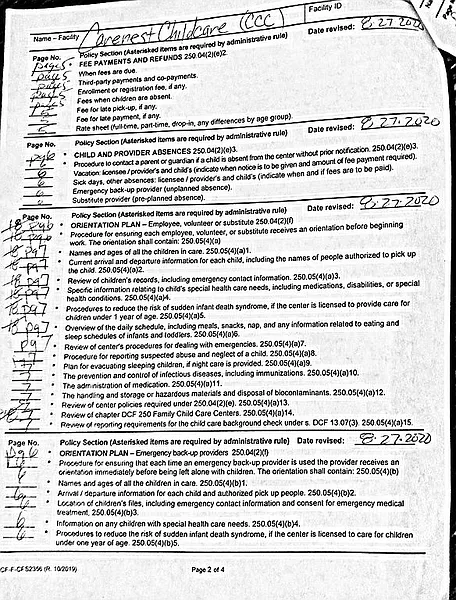 Name – Facility Carenest Childcare (CCC)
Facility ID
Page No. Policy Section (Asterisked items are required by administrative rule) Date revised: 8-27-2020
pg 5 * FEE PAYMENTS AND REFUNDS 250.04(2)(e)2.
pg 5 When fees are due.
pg 5 Third-party payments and co-payments.
pg 5 Enrollment or registration fee, if any.
pg 5 Fees when children are absent.
Fee for late pick-up, if any.
5 Fee for late payment, if any.
5 Rate sheet (full-time, part-time, drop-in, any differences by age group).
Page No. Policy Section (Asterisked items are required by administrative rule) Date revised: 8-27-2020
pg 6 * CHILD AND PROVIDER ABSENCES 250.04(2)(e)3.
6 * Procedure to contact a parent or guardian if a child is absent from the center without prior notification. 250.04(2)(e)3.
6 Vacation: licensee / provider's and child's (indicate when notice is to be given and amount of fee payment required).
6 Sick days, other absences: licensee / provider's and child's (indicate when and if fees are to be paid).
6 Emergency back-up provider (unplanned absence).
Substitute provider (pre-planned absence).
Page No. Policy Section (Asterisked items are required by administrative rule) Date revised: 8-27-2020
18 pg 6 * ORIENTATION PLAN – Employee, volunteer, or substitute 250.04(2)(f)
18 pg 6 * Procedure for ensuring each employee, volunteer, or substitute receives an orientation before beginning
work. The orientation shall contain: 250.05(4)(a)
18 pg 7 * Names and ages of all the children in care. 250.05(4)(a)1.
18 pg 7 * Current arrival and departure information for each child, including the names of people authorized to pick up
the child. 250.05(4)(a)2.
18 pg 7 * Review of children's records, including emergency contact information. 250.05(4)(a)3.
18 pg 7 * Specific information relating to child's special health care needs, including medications, disabilities, or special
health conditions. 250.05(4)(a)4.
18 pg 7 * Procedures to reduce the risk of sudden infant death syndrome, if the center is licensed to provide care for
children under 1 year of age. 250.05(4)(a)5.
18 pg 7 * Overview of the daily schedule, including meals, snacks, nap, and any information related to eating and
sleep schedules of infants and toddlers. 250.05(4)(a)6.
pg 7 * Review of center's procedures for dealing with emergencies. 250.05(4)(a)7.
7 * Procedure for reporting suspected abuse and neglect of a child. 250.05(4)(a)8.
7 * Plan for evacuating sleeping children, if night care is provided. 250.05(4)(a)9.
7 * The prevention and control of infectious diseases, including immunizations. 250.05(4)(a)10.
7 * The administration of medication. 250.05(4)(a)11.
7 * The handling and storage or hazardous materials and disposal of biocontaminants. 250.05(4)(a)12.
7 * Review of center policies required under 250.04(2)(e). 250.05(4)(a)13.
7 * Review of chapter DCF 250 Family Child Care Centers. 250.05(4)(a)14.
7 * Review of reporting requirements for the child care background check under s. DCF 13.07(3). 250.05(4)(a)15.
Page No. Policy Section (Asterisked items are required by administrative rule) Date revised: 8-27-2020
pg 6 * ORIENTATION PLAN – Emergency back-up providers 250.04(2)(f)
6 * Procedure for ensuring that each time an emergency back-up provider is used the provider receives an
orientation immediately before being left alone with children. The orientation shall contain: 250.05(4)(b)
6 * Names and ages of all the children in care. 250.05(4)(b)1.
6 * Arrival / departure information for each child and authorized pick up people. 250.05(4)(b)2.
6 * Location of children's files, including emergency contact information and consent for emergency medical
treatment. 250.05(4)(b)3.
6 * Information on any children with special health care needs. 250.05(4)(b)4.
6 * Procedures to reduce the risk of sudden infant death syndrome, if the center is licensed to care for children
under one year of age. 250.05(4)(b)5.
CF-F-CFS2356 (R. 10/2019)
Page 2 of 4